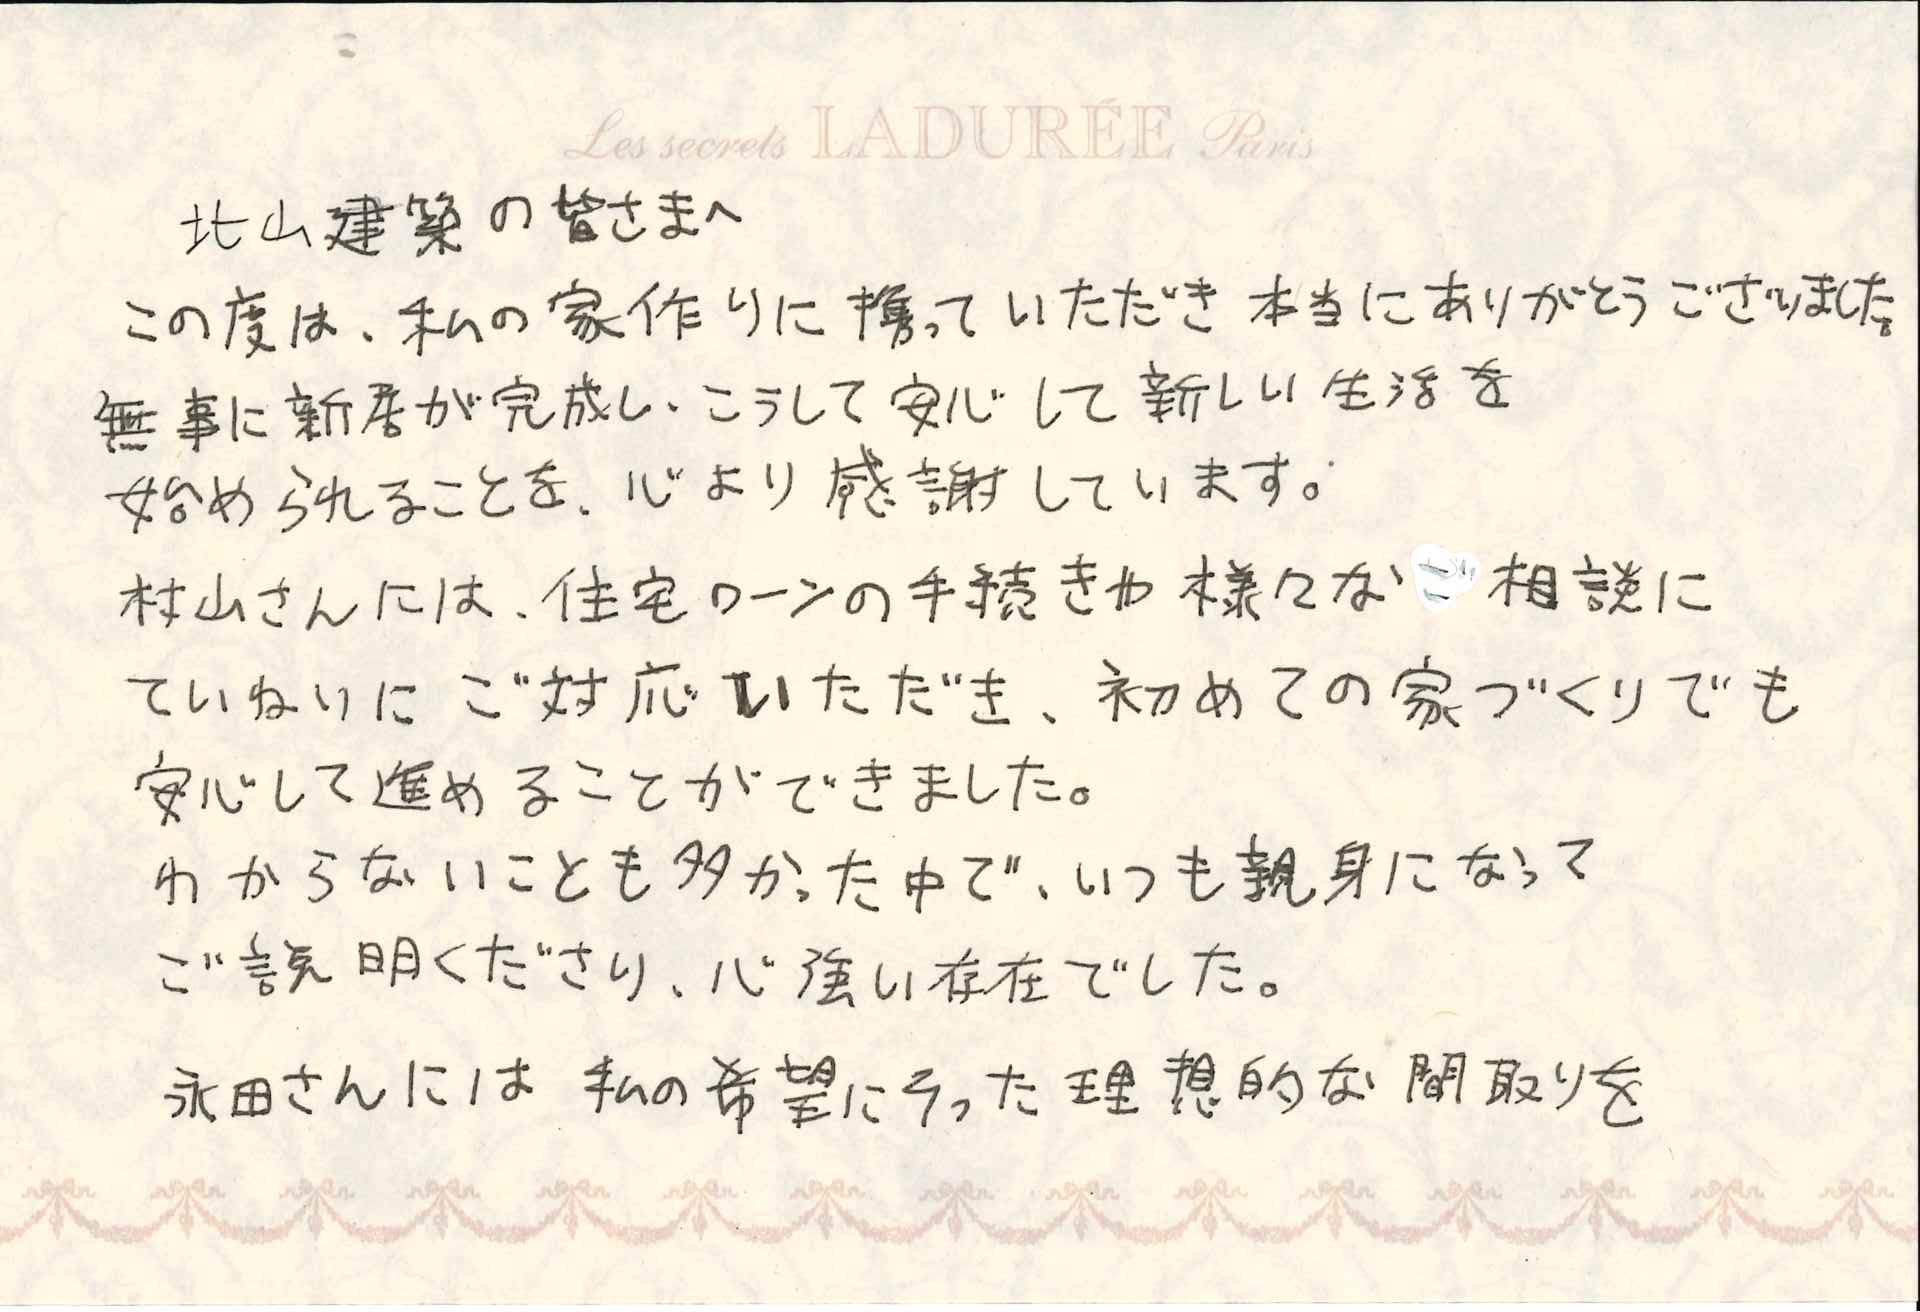 Les secrets LADURÉE Paris
北山建築の皆さまへ
この度は、私の家作りに携っていただき本当にありがとうございました。
無事に新居が完成し、こうして安心して新しい生活を
始められることを、心より感謝しています。
村山さんには、住宅ローンの手続きや様々なご相談に
ていねいにご対応いただき、初めての家づくりでも
安心して進めることができました。
わからないことも多かった中で、いつも親身になって
ご説明くださり、心強い存在でした。
永田さんには私の希望にそった理想的な間取りを